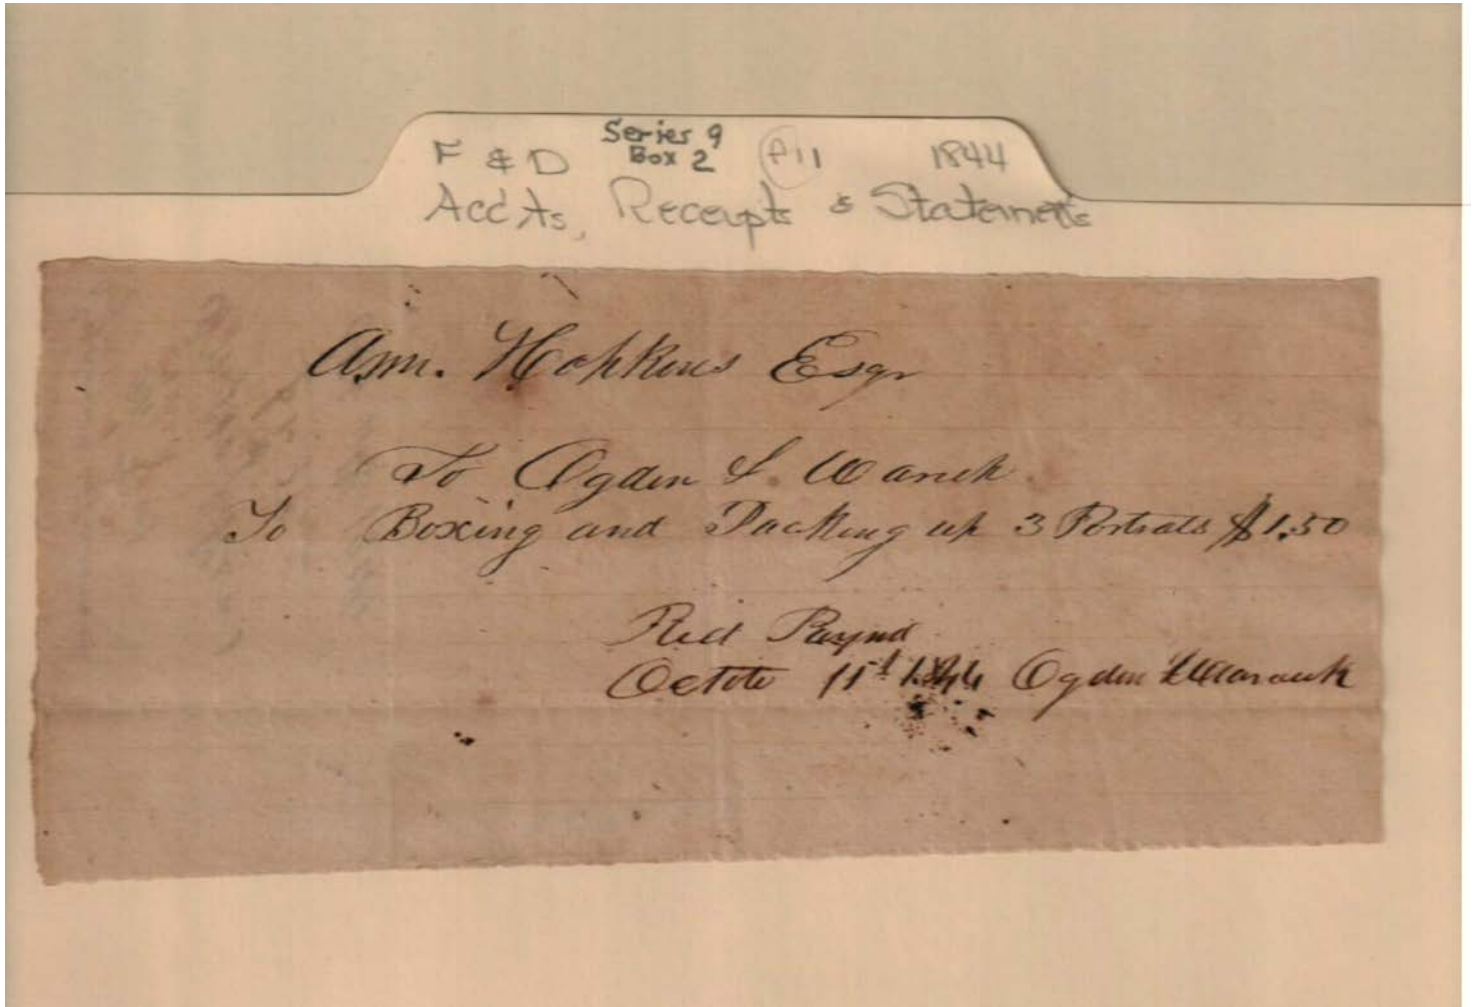 F & D Series 9 Box 2 A11 1844
Acc'ts, Receipts & Statements
Asm. Hopkins Esqr
To Ogden L. Warick
To Boxing and Packing up 3 Portrats $1.50
Recd Paymt
Octobr 11th 1844 Ogden L Warick